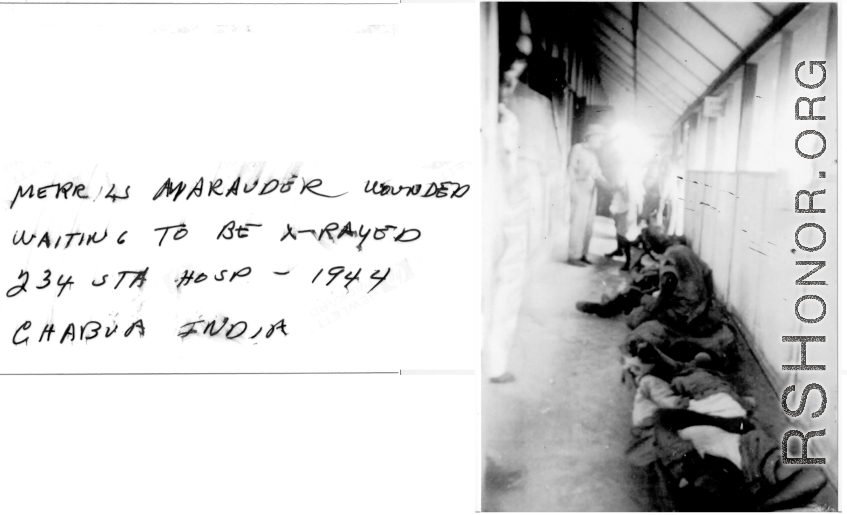 MERRILS MARAUDER WOUNDED
WAITING TO BE X-RAYED
234 STA HOSP - 1944
CHABUA INDIA
RSHONOR.ORG